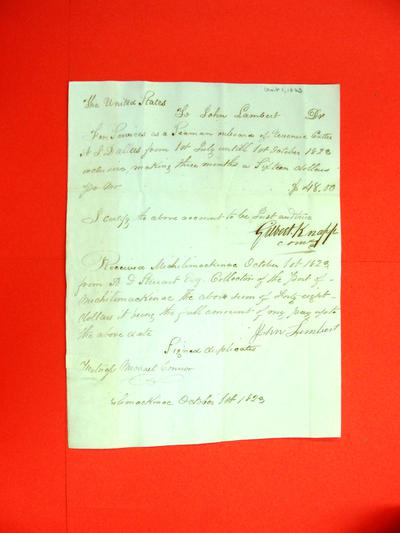 Oct 1, 1823
The United States
To John Lambert Dr
For Services as a Seaman on board of Revenue Cutter
A J Dallas from 1st July untill 1st October 1823
inclusive, making three months a Sixteen dollars
$ 48.00
I certify the above account to be Just and true
Gilbert Knapp
Received Michilimackinac October 1st 1823
from A D Steuart Esq. Collector of the Port of
Michilimackinac the above sum of Forty eight
dollars it being the full amount of my pay up to
the above date
John Lambert
Signed duplicates
Michael Connor
October 1st 1823